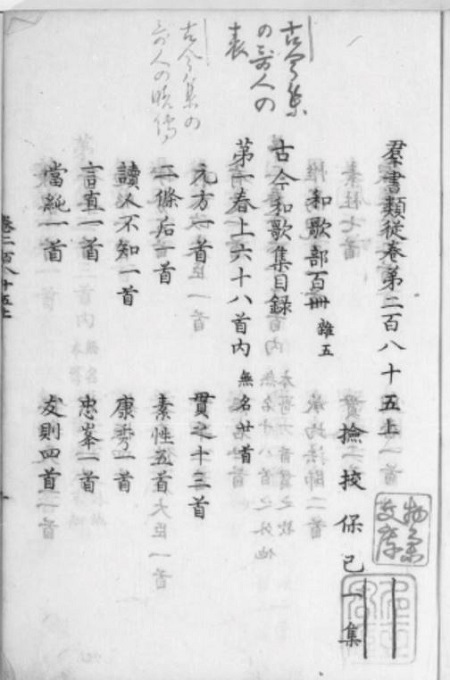 羣書類従巻第二百八十五上
撿挍保己一集
和歌部百卌 雜五
古今和歌集目録
第一春上六十八首内 無名廿首
元方一首 貫之十三首
二條后一首 素性五首
讀人不知一首 康秀一首
言直一首 忠岑一首
當純一首 友則四首
古今集
の哥人の
表
古今集の